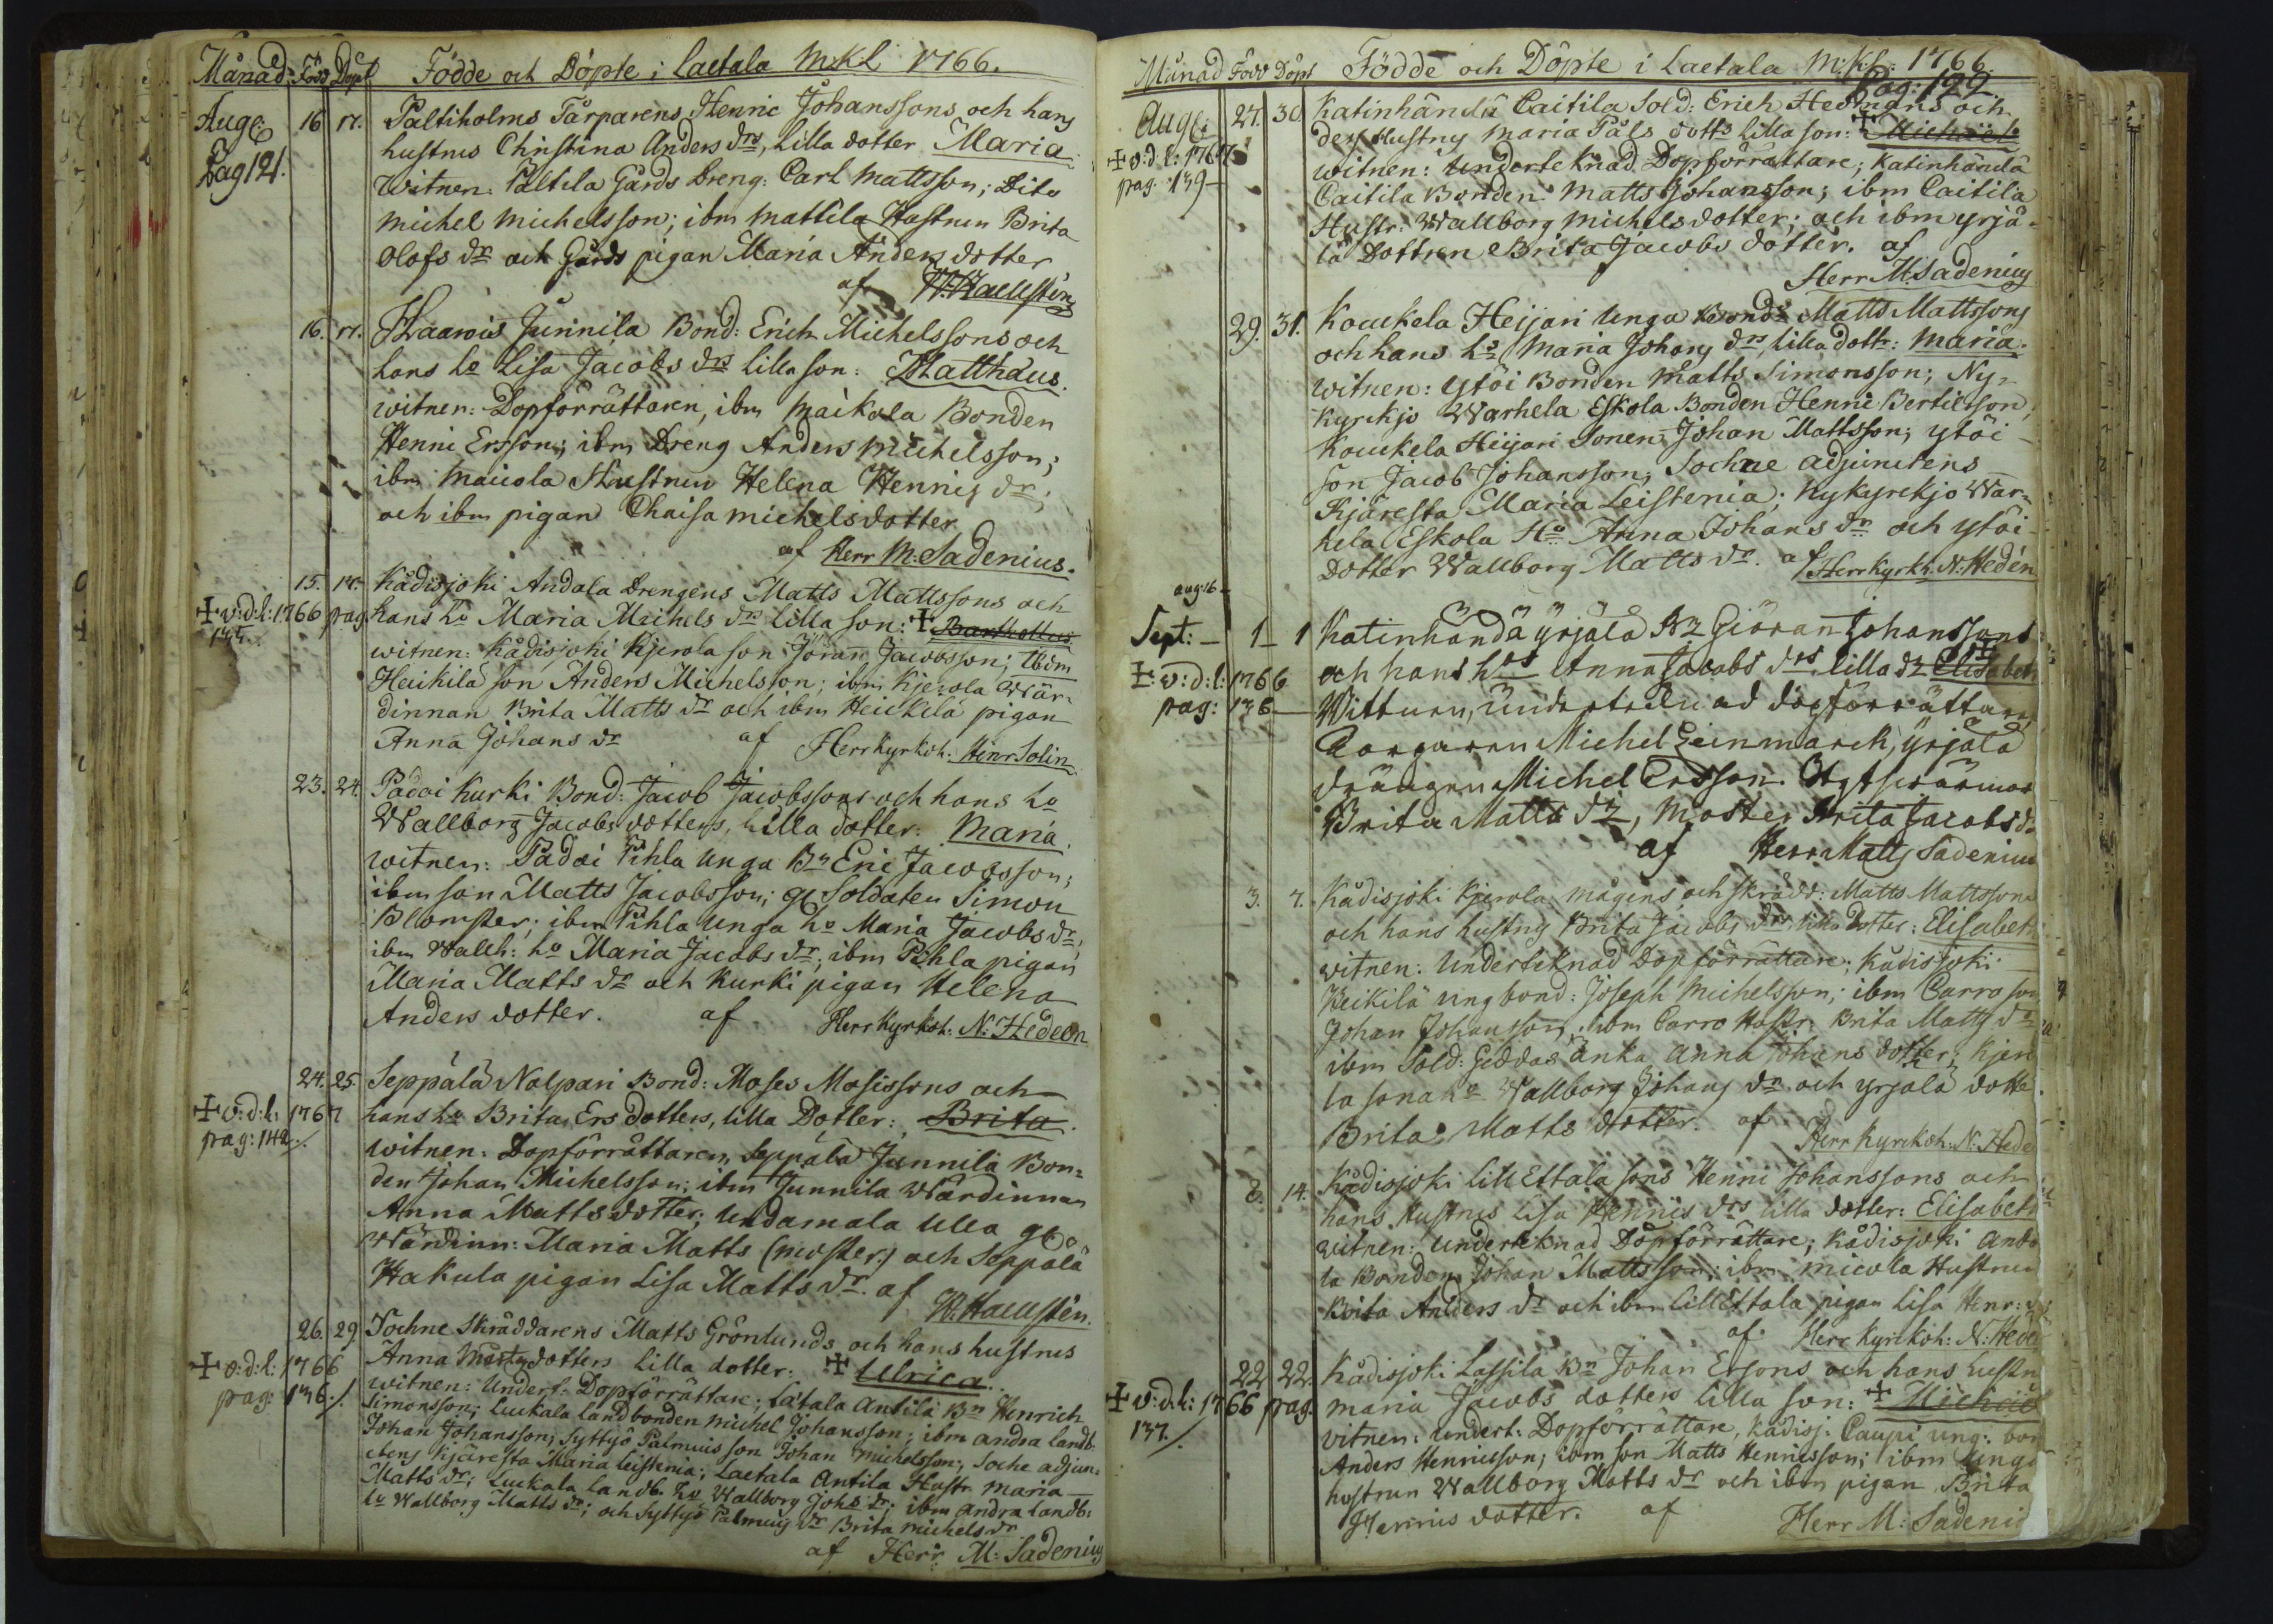 Månad Född Döpt Födde och Döpte i Laetala M.K.L 1766.
Aug: 16 17. Paltiholms Tårparens Henric Johanssons och hans
Pag 121. hustrus Christina Anders drs, lilla dotter Maria
witnen: Paltila Gårds Dreng: Carl Mattsson; Dito
Michel Michelsson; ibm Mattila Hustrun Brita
Olofs dr och Gårds pigan Maria Anders dotter
af H: Haeusten
16. 17. Haawis Junnila Bond: Erich Michelssons och
hans ho Lisa Jacobs drs lilla son: Matthæus.
witnen: Dopförrättaren, ibm Maikola Bonden
Henric Ersson; ibm Dreng Anders Michelsson;
ibm Maicola Hustrun Helena Hennis dr;
och ibm pigan Chaisa Michelsdotter
af Herr M: Sadenius.
15. 17. Kådisjoki Andala Drengens Matts Mattssons och
✝ v:d:l: 1766 pag hans ho Maria Michels dr lilla son: ✝ Bartholleus
witnen: Kådisjoki Kjerola son Jöran Jacobsson; Ibm
Heikilä son Anders Michelsson; ibm Kjerola Wär-
dinnan Brita Matts dr och ibm Heickilä pigan
Anna Johans dr af Herr Kyrkoh: Henr Solin
23. 24 Padoi Kurki Bond: Jacob Jacobssons och hans ho
Wallborg Jacobs dotters, lilla dotter: Maria.
witnen: Padoi Pihla Unga Bn Eric Jacobsson;
ibm son Matts Jacobsson; gl Soldaten Simon
Blomster; ibm Pihla Unga ho Maria Jacobs dr,
ibm Wallb: ho Maria Jacobs dr; ibm Pihla pigan
Maria Matts dr och Kurki pigan Helena
Anders dotter. af Herr Kyrkoh: N: Hedeen
24. 25. Seppälä Nalpari Bond: Moses Mosissons och
✝ v:d:l: 1767 hans ho Brita Ers dotters, lilla Dotter: Brita.
pag: 142./. witnen: Dopförrättaren, Seppälä Junnila Bon-
den Johan Michelsson; ibm Junnila Wärdinnan
Anna Matts dotter; Undamala Ulla gl
Wärdinn: Maria Matts (moster:) och Seppälä
Hakula pigan Lisa Matts dr. af
H: Haeusten.
26. 29 Sochne Skräddarens Matts Grönlunds och hans hustrus
✝ v:d:l: 1766 Anna Mårtz dotters lilla dotter: ✝ Ulrica.
pag: 136./. witnen: Undert: Dopförrättare; Latala Antila Bn Henrich
Simonsson; Luckala landbonden Michel Johansson; ibm andra landb.
Johan Johansson; Syttyö Palmuis son Johan Michelsson; Soche adjun-
ctens Kjäresta Maria Leistenia; Laetala Antila Hustr Maria
Matts dr; Luckala landb. ho Wallborg Johs dr; ibm andra landb:
ho Wallborg Matts dr; och Syttyö Palmuis dr Brita Michels dr
af Herr M: Sadenius
Månad Född Döpt Födde och Döpte i Laetala M:K:L: 1766.
Pag: 129.
Aug: 27. 30. Katinhändä Caitila Sold: Erich Hedmans och
✝ v:d:l: 1767 des Hustrus Maria Påls dotts lilla son: ✝ Michaël
pag: 139 witnen: Underteknad Dopförrättare; Katinhändä
Caitila Bonden Matts Johansson; ibm Caitila
Hustr: Wallborg Michelsdotter; och ibm yrjä-
lä Dottren Brita Jacobs dotter. af
Herr M: Sadenius
29. 31. Kouckela Heijari Unga Bonds Matts Mattssons
och hans ho Mana Johans drs, lilla dottr: Maria.
witnen: Ytöi Bonden Matts Simonsson; Ny-
kyrckjo Warhela Eskola Bonden Henric Bertilsson,
Kouckela Heijari Sonen Johan Mattsson; ytöi
son Jacob Johansson; Sochne adjunctens
Kjäresta Maria Leistenia; Nykyrckjo War-
hela Eskola Ho Anna Johans dr och ytöi
Dotter Wallborg Matts dr. af Herr Kyrkh: N: Hedén
aug: 16
Sept: 1 1 Katinhändä yrjälä Br Giöran Johanssons
✝: v:d:l: 1766 och hans hrs Anna Jacobs drs lilla dr ✝ Elisabeth
pag: 136 Wittnen, undertecknad döpförrättare,
Michel Leinmarck, yrjälä
drängen Michel Ersson.
Brita Matts dr, Moster Brita Jacobs dr
af Herr Matts Sadenius
3. 7. Kådisjoki Kjerola mågens och skrädd: Matts Mattssons
och hans hustrus Brita Jacobs drs lilla dotter: Elisabeth
witnen: Underteknad Dopförrättare; Kådisjoki
Heikilä ung bond: Joseph Michelsson; ibm Carro son
Johan Johansson; ibm Carro Hustr: Brita Matts dr
ibm Sold: Geddas änka Anna Johans dotter; Kjero
la sona ho Wallborg Johans dr och yrjälä dotte
Brita Matts dotter. af Herr Kyrckoh: N: Hede
8. 14. Kådisjoki Lill Ettala sons Henric Johanssons och
hans Hustrus Lisa Henriis drs lilla dotter: Elisabeth
witnen: Underteknad Dopförrättare; Kådisjoki Anda
la Bonden Johan Mattsson; ibm micola Hustrun
Brita Anders dr och ibm Lill Ettala pigan Lisa Henr:
af Herr Kyrckoh: N: Hede
22 22. Kådisjoki Lassila Bn Johan Ersons och hans hustru
✝ v:d:l: 1766 pag. Maria Jacobs dotters lilla son: ✝ Michaël
137./. vitnen: Undert: Dopförrättare, Kådisj: Caupi ung: bon
Anders Hennicsson; ibm son Matts Hennicsson; ibm Unga
hustrun Wallborg Matts dr och ibm pigan Brita
Hennis dotter. af Herr M: Sadeni